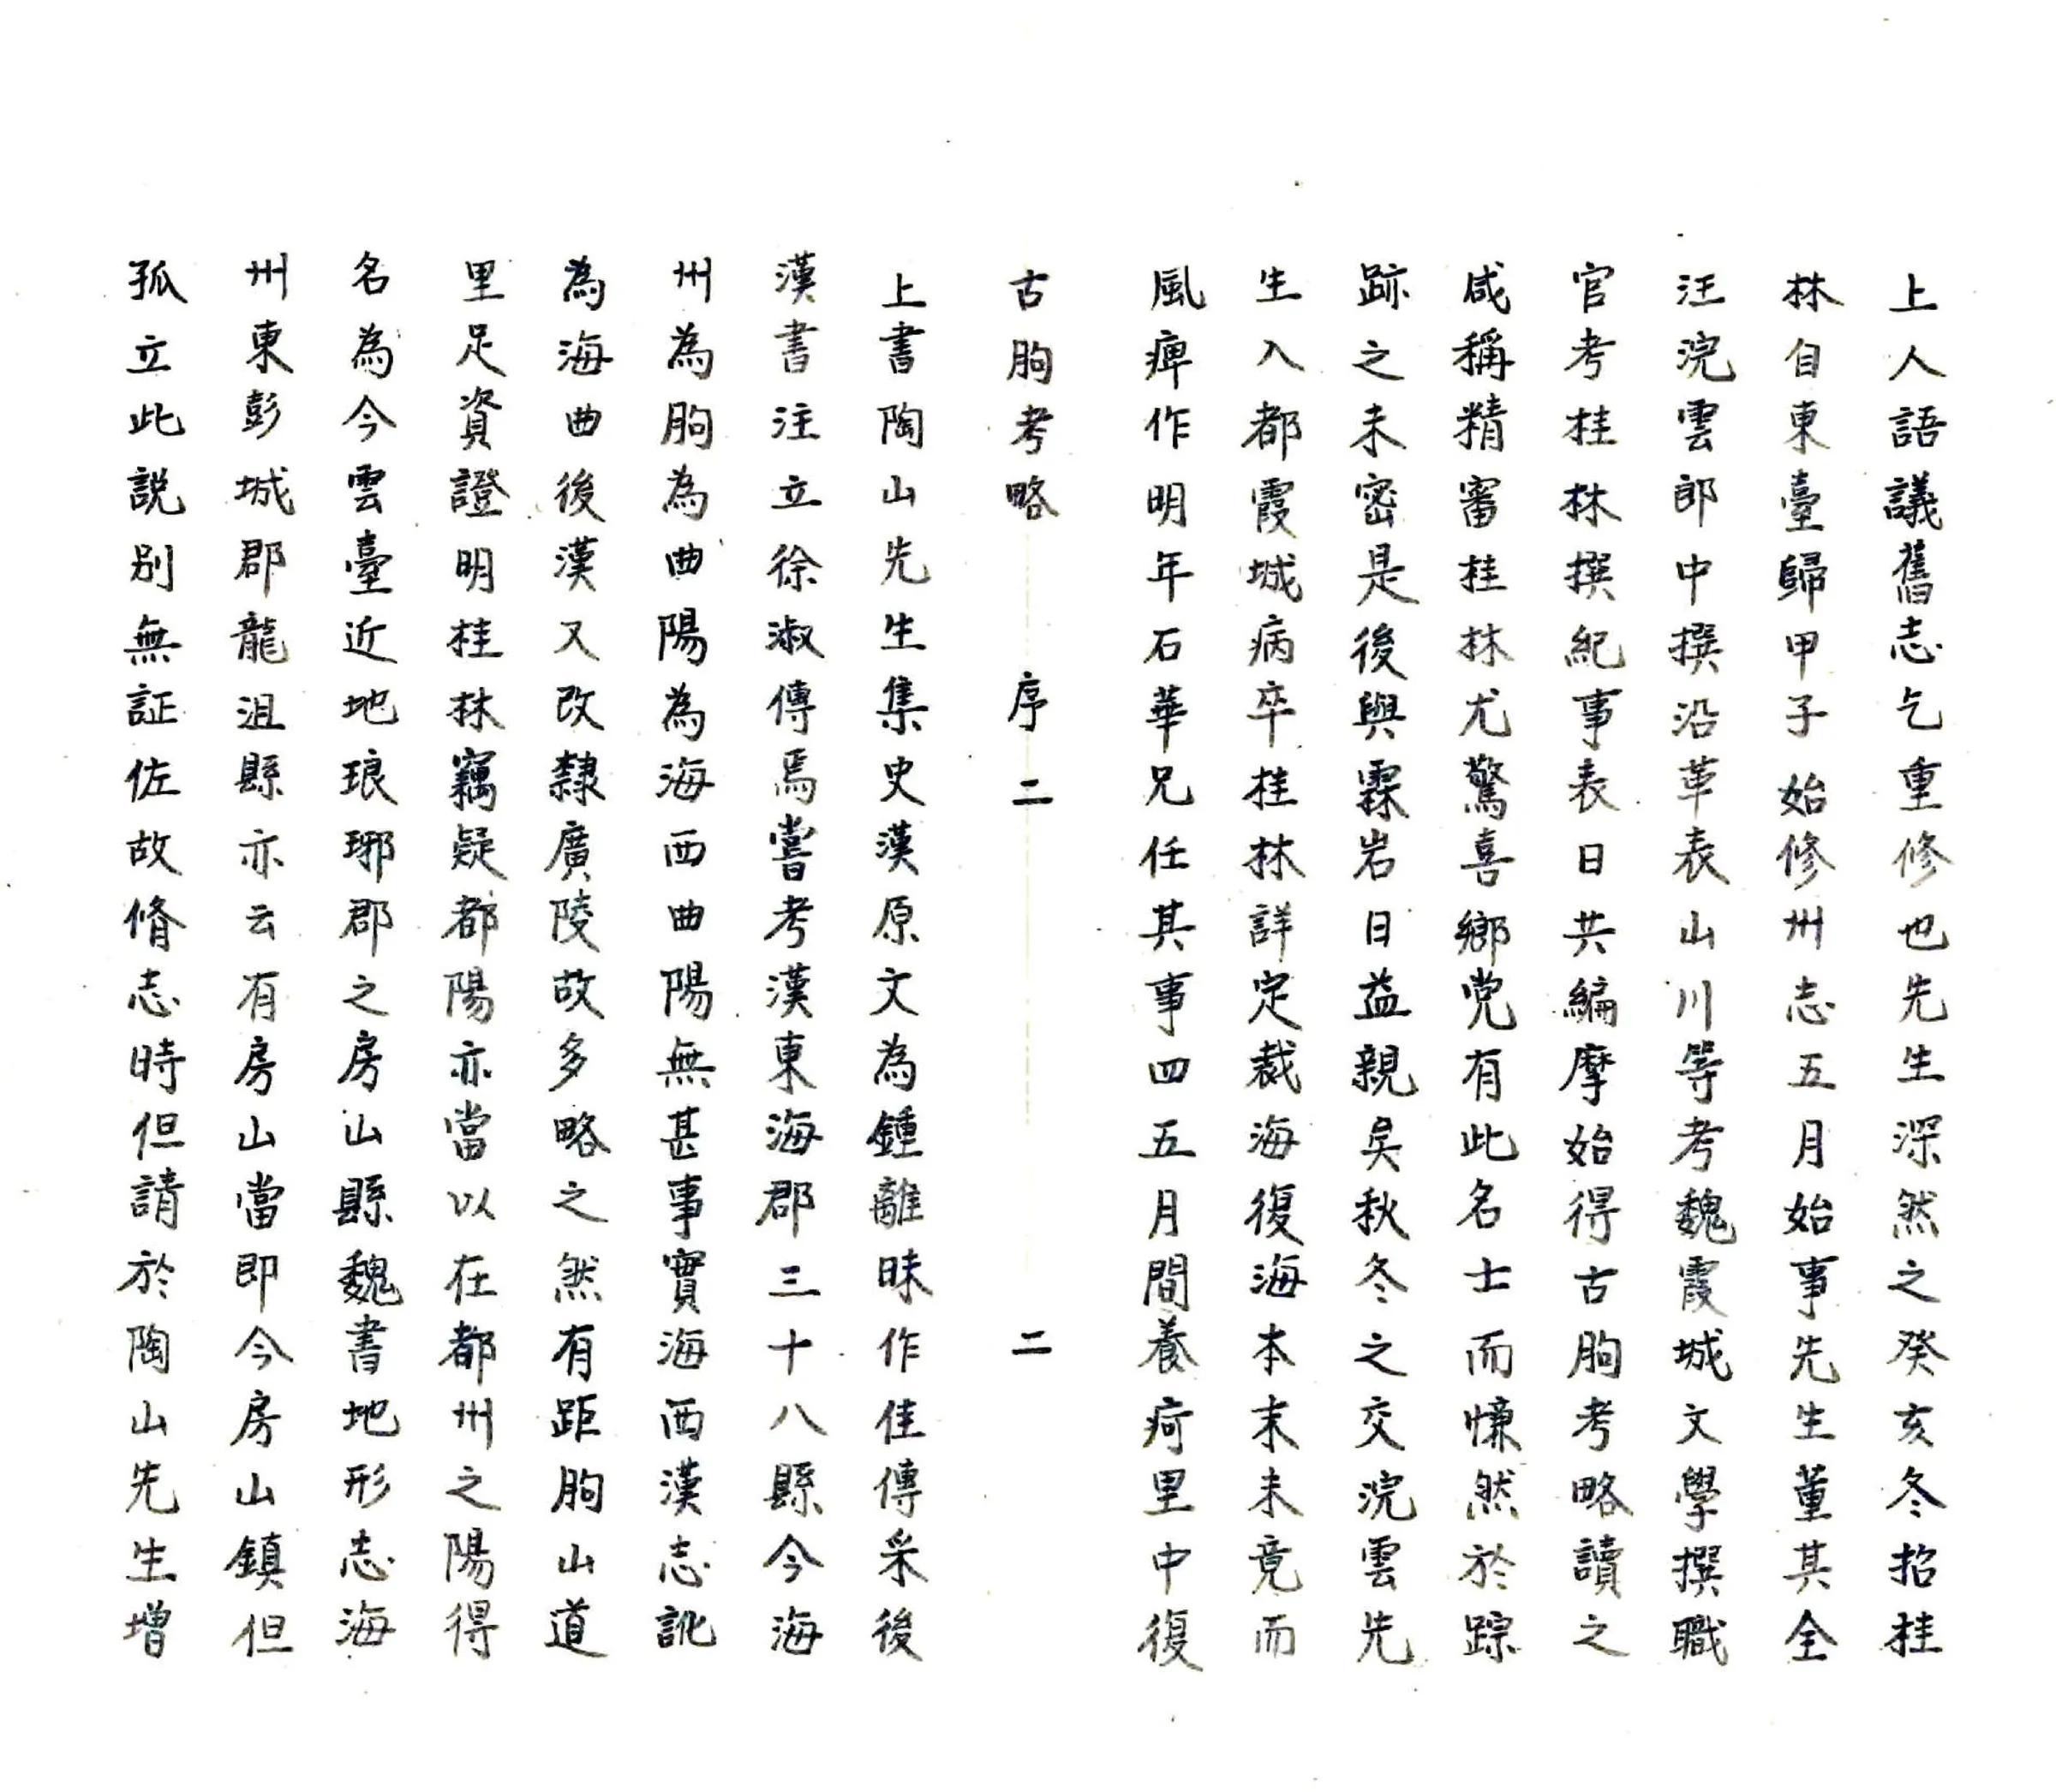 上人語議舊志乞重修也先生深然之癸亥冬招桂
林自東臺歸甲子始修州志五月始事先生董其全
汪浣雲郎中撰沿革表山川等考魏霞城文學撰職
官考桂林撰紀事表日共編摩始得古朐考略讀之
咸稱精審桂林尤驚喜鄉党有此名士而慊然於踪
跡之未密是後與霖岩日益親矣秋冬之交浣雲先
生入都霞城病卒桂林詳定裁海復海本末未竟而
風痺作明年石華兄任其事四五月間養疴里中復
古朐考略 序二 二
上書陶山先生集史漢原文為鍾離昧作佳傳采後
漢書注立徐淑傳焉嘗考漢東海郡三十八縣今海
州為朐為曲陽為海西曲陽無甚事實海西漢志訛
為海曲後漢又改隸廣陵故多略之然有距朐山道
里足資證明桂林竊疑都陽亦當以在都州之陽得
名為今雲臺近地琅琊郡之房山縣魏書地形志海
州東彭城郡龍沮縣亦云有房山當即今房山鎮但
孤立此説别無証佐故脩志時但請於陶山先生增